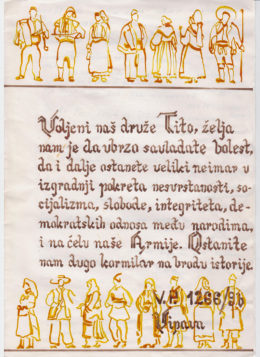 Voljeni naš druže Tito, želja
nam je da ubrzo savladate bolest,
da i dalje ostanete veliki neimar u
izgradnji pokreta nesvrstanosti, so-
cijalizma, slobode, integriteta, de-
mokratskih odnosa među narodima,
i na čelu naše Armije. Ostanite
nam dugo kormilar na brodu istorije.
V.P. 1266/96
Vipava